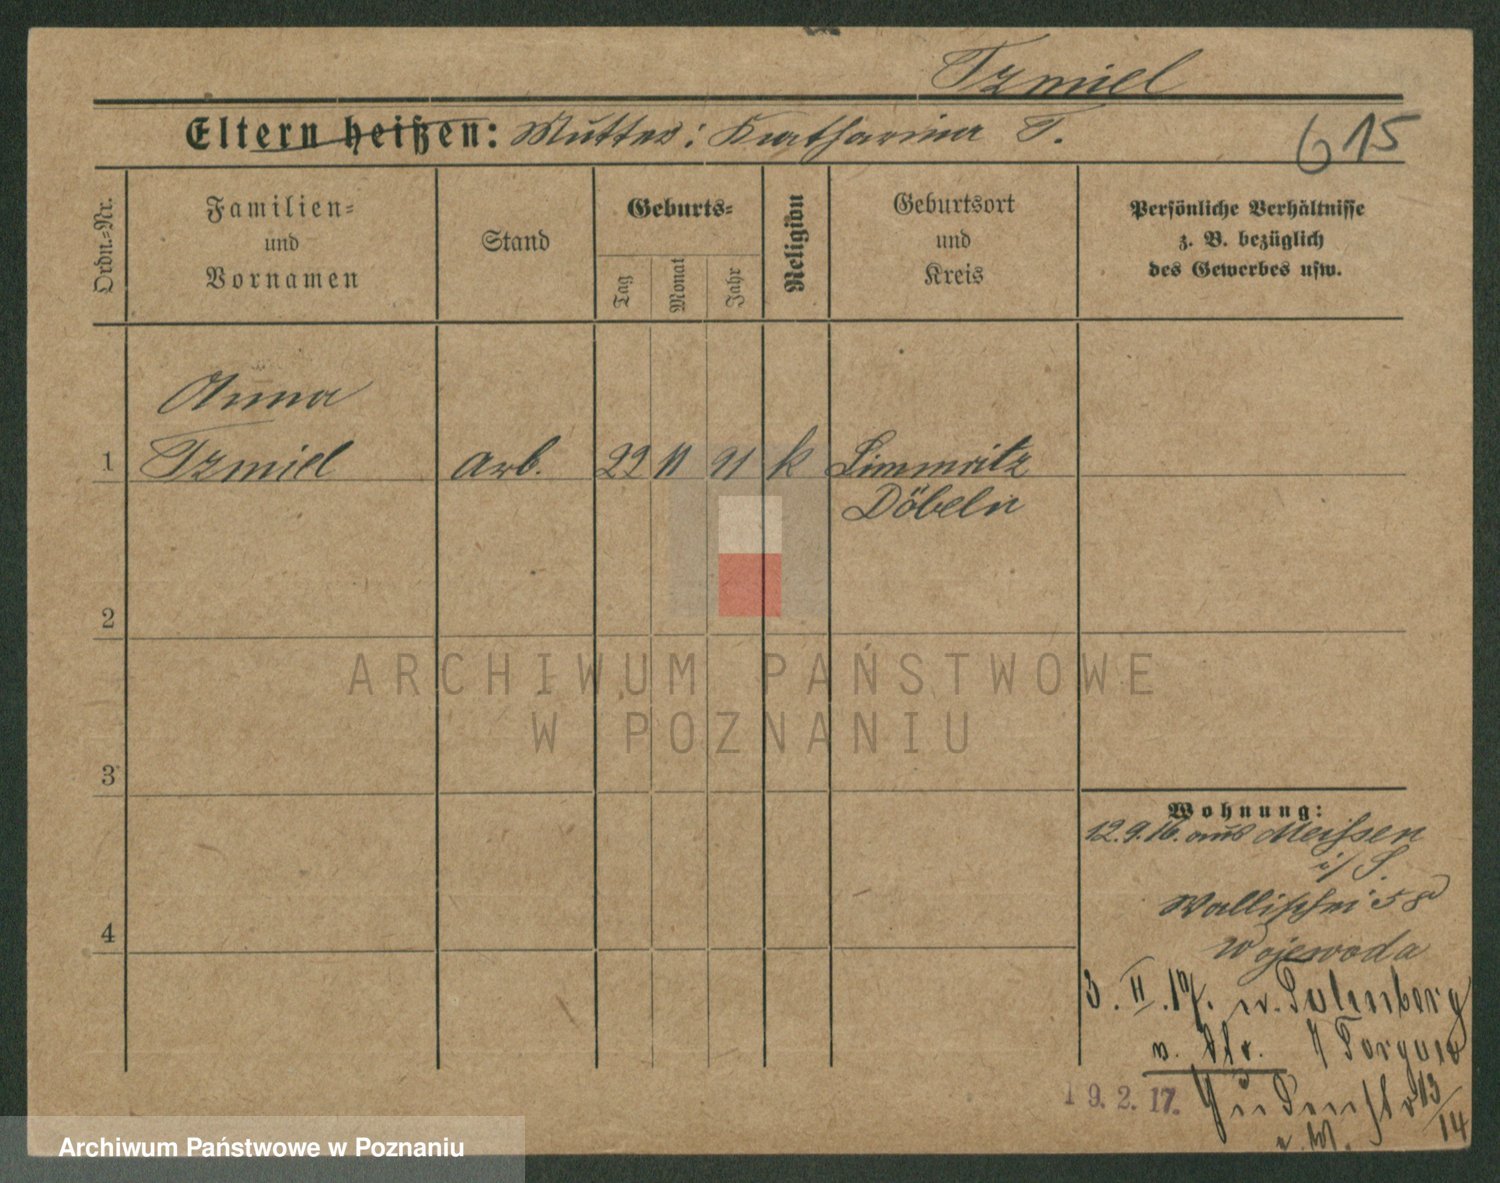 Tzmiel
Eltern heißen: Mutter: Katharina T.
615
Ordn.-Nr.
Familien-
und
Vornamen
Stand
Geburts-
Tag
Monat
Jahr
Religion
Geburtsort
und
Kreis
Persönliche Verhältnisse
z. B. bezüglich
des Gewerbes usw.
Anna
1 Tzmiel arb. 22 11 91 k Limmritz
Döbeln
2
ARCHIWUM PAŃSTWOWE
W POZNANIU
3
Wohnung:
12.9.16. aus Meissen
i/S.
Wallischei 58
Wojewoda
4
3. II. 17. n.
19. 2. 17.
13/14
Archiwum Państwowe w Poznaniu